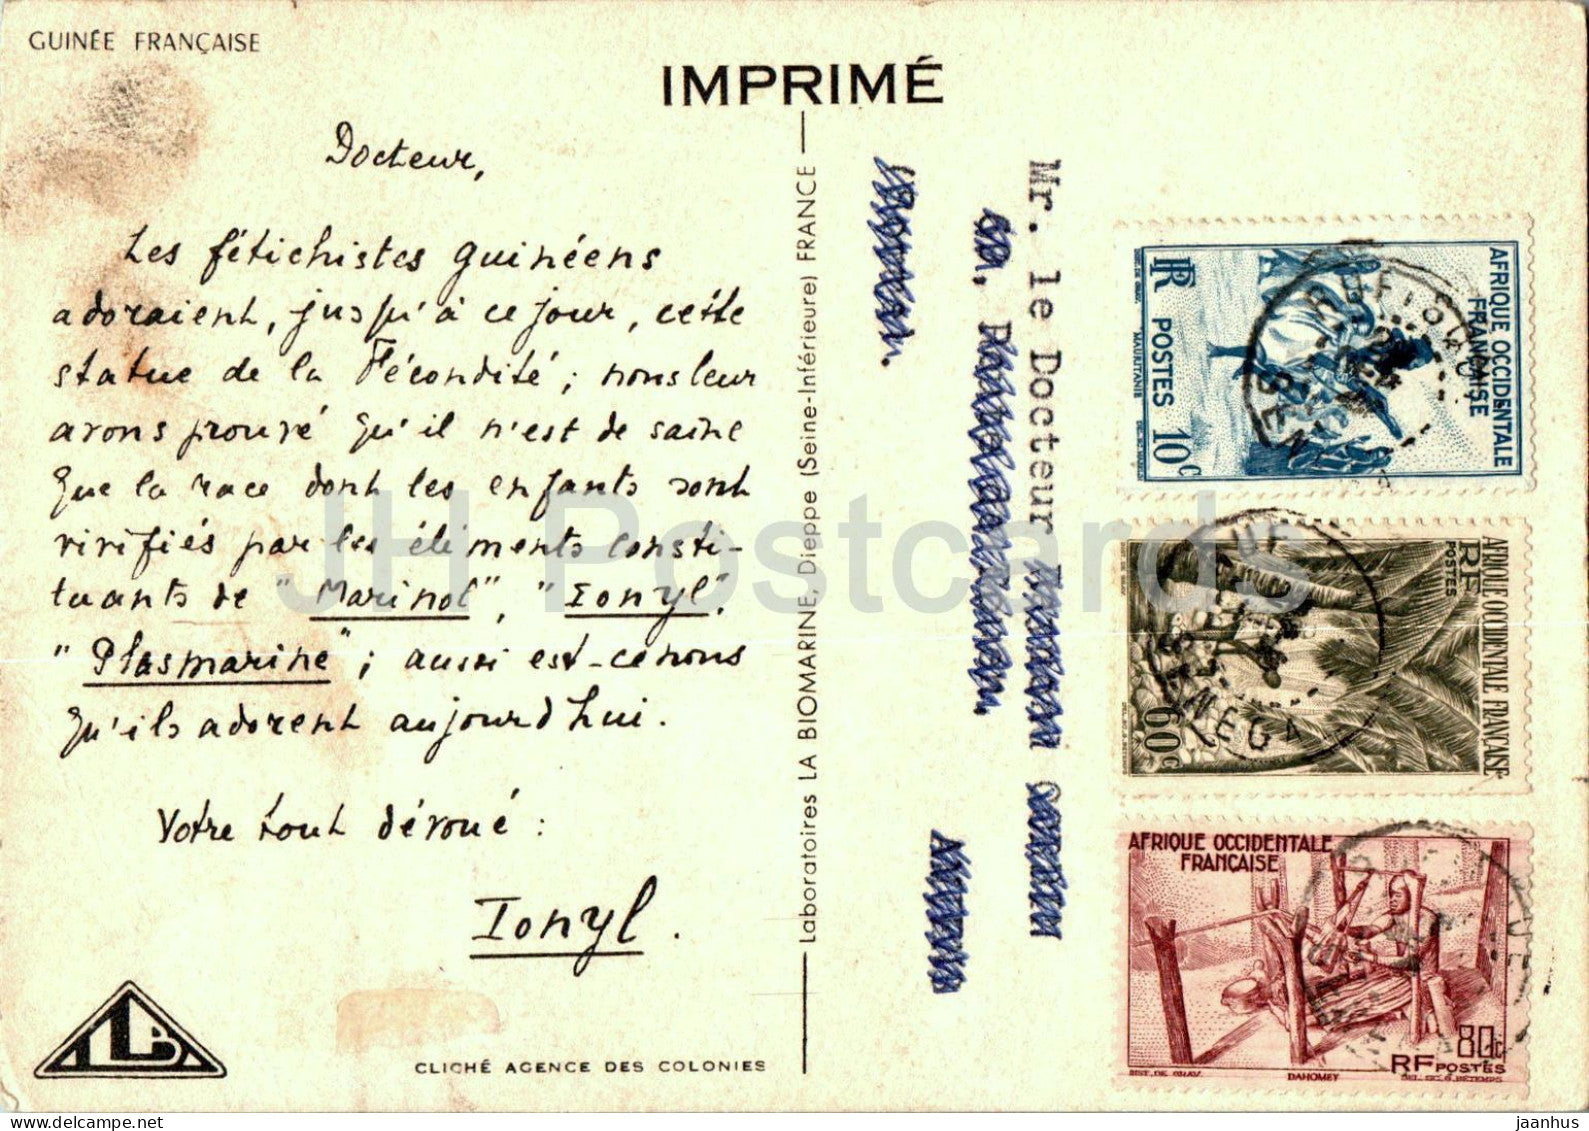 GUINÉE FRANÇAISE
IMPRIMÉ
Docteur,
Les fétichistes guinéens
adoraient, jusqu'à ce jour, cette
statue de la Fécondité ; nous leur
avons prouvé qu'il n'est de saine
que la race dont les enfants sont
vivifiés par les éléments consti-
tuants de "Marinol", "Ionyl",
"Plasmarine" ; aussi est-ce nous
qu'ils adorent aujourd'hui.
Votre tout dévoué :
Ionyl.
LB
CLICHÉ AGENCE DES COLONIES
Laboratoires LA BIOMARINE, Dieppe (Seine-Inférieure) FRANCE
Mr. le Docteur
AFRIQUE OCCIDENTALE
FRANÇAISE
RF POSTES 10c
MAURITANIE
AFRIQUE OCCIDENTALE FRANÇAISE
RF
POSTES
60c
AFRIQUE OCCIDENTALE
FRANÇAISE
80c
RF POSTES
DAHOMEY
JH Postcards
jaanhus